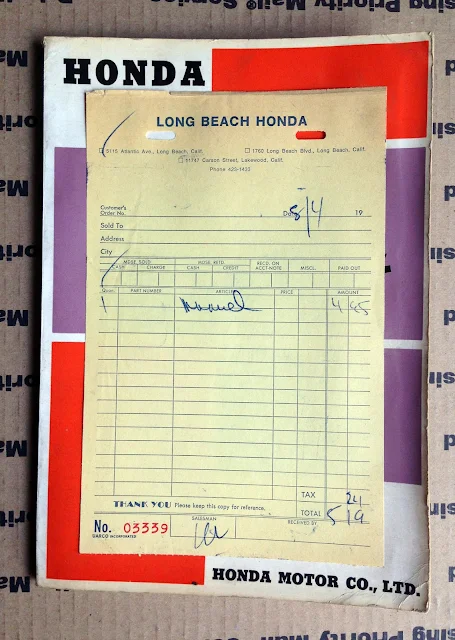 HONDA
LONG BEACH HONDA
5115 Atlantic Ave., Long Beach, Calif. 1760 Long Beach Blvd., Long Beach, Calif.
11747 Carson Street, Lakewood, Calif.
Phone 423-1433
Customer's
Order No. Date 8/4 19
Sold To
Address
City
MDSE. SOLD MDSE. RETD. RECD. ON ACCT-NOTE MISCL. PAID OUT
CASH CHARGE CASH CREDIT
Quan. PART NUMBER ARTICLE PRICE AMOUNT
1 Manual 4 95
TAX 24
THANK YOU Please keep this copy for reference. TOTAL 5 19
No. 03339 SALESMAN RECEIVED BY
DARCO INCORPORATED
HONDA MOTOR CO., LTD.
Priority Mail